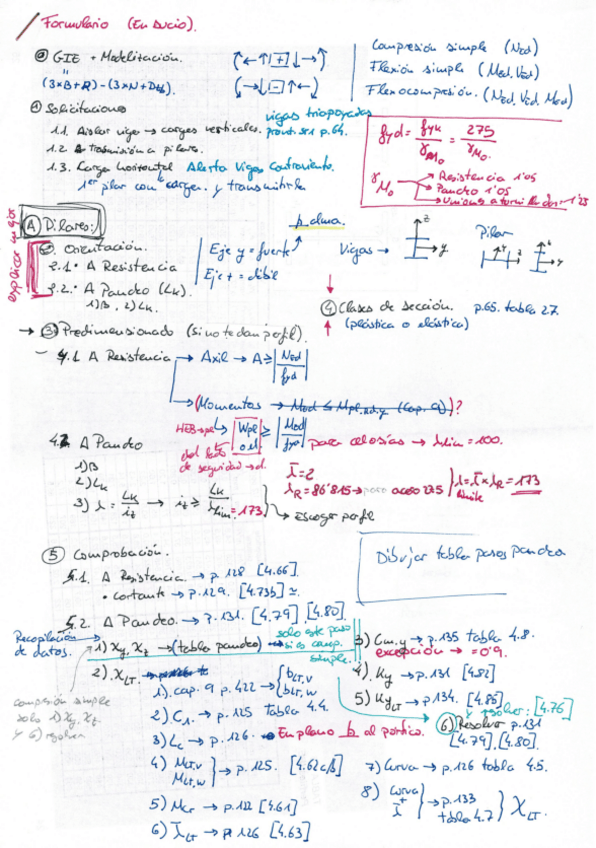 Formulario (En sucio).
⓪ GIE + Modelización.
(3×B+R) - (3×N+Dtb).
Compresión simple (Ned)
Flexión simple (Med, Ved).
Flexocompresión. (Ned, Ved, Med)
① Solicitaciones
1.1. Aislar viga → cargas verticales.
vigas triapoyadas
pront. ser p.64.
1.2. Transmisión a pilares.
1.3. Carga horizontal Alerta Vigas Contraviento.
1er pilar con carga. y transmitirla
fyd = fyk / γM0 = 275 / γM0.
γM0 → Resistencia 1'05
Pandeo 1'05
Uniones atornilladas 1'25
explicar mejor
Ⓐ Pilares:
② Orientación.
2.1. A Resistencia
2.2. A Pandeo (Lk).
1) β, 2) Lk.
Eje y = fuerte
Eje z = débil
p. alma.
Vigas → z y
Pilar
④ Clases de sección. p.65. tabla 27.
(plástica o elástica)
→ ③ Predimensionado (si no te dan perfil).
4.1 A Resistencia → Axil → A ≥ |Ned / fyd|
→ (Momentos → Med ≤ Mpl,Rd,y (Cap. 9))?
HEB→pl Wpl o el ≥ |Med / fyd|
del lado
de seguridad → el.
para celosías → λlim = 100.
4.2 A Pandeo
1) β
2) Lk
3) λ = Lk / iz → iz ≥ Lk / λlim = 173
λ̄ = 2
λR = 86'815 → para acero 275
λ límite = λ̄ × λR = 173
→ Escoger perfil
⑤ Comprobación.
Dibujar tabla pasos pandeo
5.1. A Resistencia → p. 128 [4.66].
• cortante → p. 129. [4.73b]
5.2. A Pandeo. → p. 131. [4.79], [4.80].
Recopilación
de datos.
1) χy, χz → (tabla pandeo) →
solo este paso
si es comp.
simple.
compresión simple
solo 1) χy, χz
y 6) resolver
2). χLT.
1). cap. 9 p. 422 → bLT,v
bLT,w
2) C1. → p. 125 tabla 4.4.
3) Lc → p. 126. → En plano b al pórtico.
4) MLT,v
MLT,w → p. 125. [4.62a/b]
5) Mcr → p. 122 [4.61]
6) λ̄LT → p. 126 [4.63]
3) Cm,y → p. 135 tabla 4.8.
excepción → = 0'9.
4). Ky → p. 131 [4.82]
5) KyLT → p. 134. [4.85]
y resolver: [4.76]
⑥ Resolver p. 131
[4.79], [4.80].
7) Curva → p. 126 tabla 4.5.
8) Curva
+
λ̄ → p. 133
tabla 4.7 } χLT